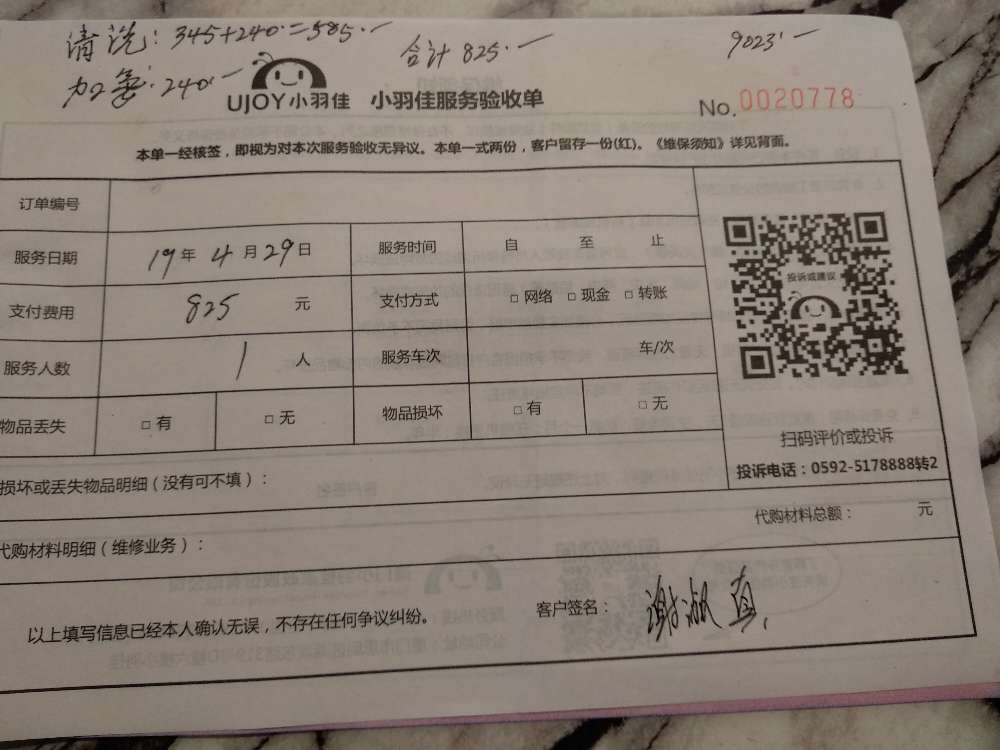 清洗：345+240=585.
合计 825.
9023.
加氟：240.
UJOY小羽佳 小羽佳服务验收单
No. 0020778
本单一经核签，即视为对本次服务验收无异议。本单一式两份，客户留存一份(红)。《维保须知》详见背面。
订单编号
服务日期 19年 4月 29日 服务时间 自 至 止
投诉或建议
支付费用 825 元 支付方式 □ 网络 □ 现金 □ 转账
服务人数 1 人 服务车次 车/次
物品丢失 □ 有 □ 无 物品损坏 □ 有 □ 无
扫码评价或投诉
投诉电话：0592-5178888转2
损坏或丢失物品明细（没有可不填）：
代购材料总额： 元
代购材料明细（维修业务）：
以上填写信息已经本人确认无误，不存在任何争议纠纷。
客户签名：谢淑真